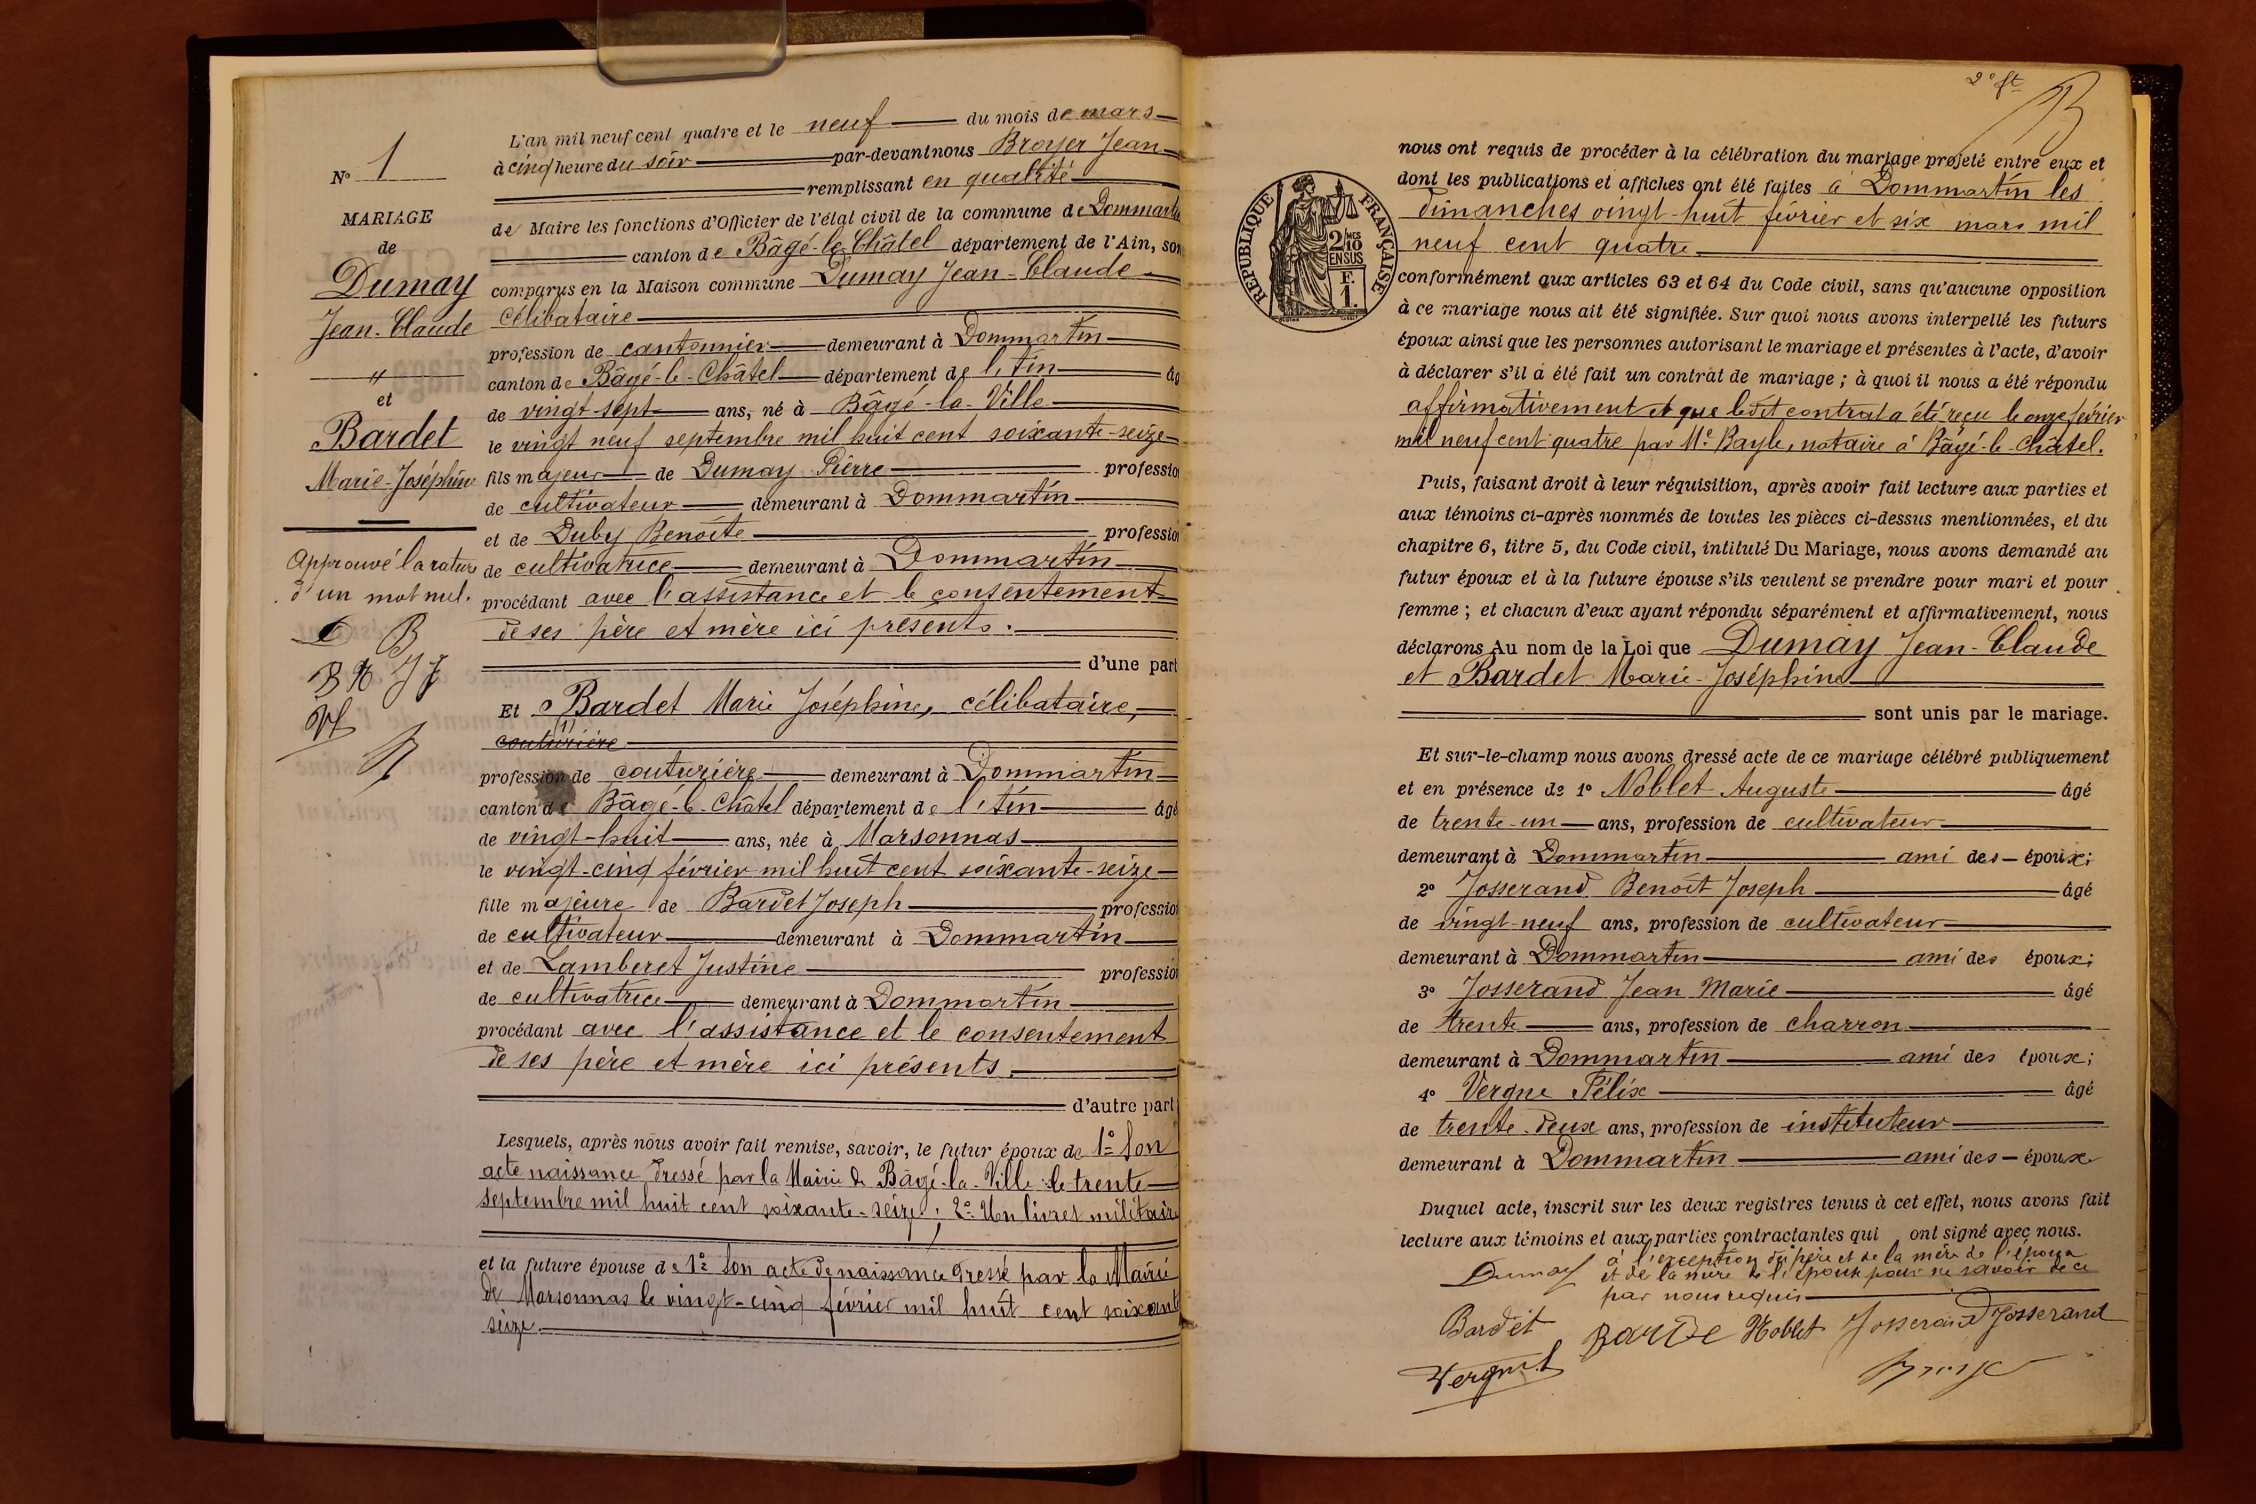 N° 1
MARIAGE
de
Dumay
Jean-Claude
"
et
Bardet
Marie-Joséphine
Approuvé la rature
d'un mot nul.
B
B N J J
Vf
L'an mil neuf cent quatre et le neuf du mois de mars
à cinq heure du soir par-devant nous Broyer Jean
remplissant en qualité
de Maire les fonctions d'Officier de l'état civil de la commune de Dommartin
canton de Bâgé-le-Châtel département de l'Ain, son
comparus en la Maison commune Dumay Jean-Claude
célibataire
profession de cantonnier demeurant à Dommartin
canton de Bâgé-le-Châtel département de l'Ain âg
de vingt-sept ans, né à Bâgé-la-Ville
le vingt neuf septembre mil huit cent soixante-seize
fils majeur de Dumay Pierre profession
de cultivateur demeurant à Dommartin
et de Duby Benoîte profession
de cultivatrice demeurant à Dommartin
procédant avec l'assistance et le consentement
de ses père et mère ici présents.
d'une part
Et Bardet Marie Joséphine, célibataire,
couturière
profession de couturière demeurant à Dommartin
canton de Bâgé-le-Châtel département de l'Ain âgé
de vingt-huit ans, née à Marsonnas
le vingt-cinq février mil huit cent soixante-seize
fille majeure de Bardet Joseph profession
de cultivateur demeurant à Dommartin
et de Lamberet Justine profession
de cultivatrice demeurant à Dommartin
procédant avec l'assistance et le consentement
de ses père et mère ici présents.
d'autre part
Lesquels, après nous avoir fait remise, savoir, le futur époux de 1° Son
acte naissance dressé par la Mairie de Bâgé-la-Ville le trente
septembre mil huit cent soixante-seize; 2° Un livret militaire
et la future épouse de 1° Son acte de naissance dressé par la Mairie
de Marsonnas le vingt-cinq février mil huit cent soixante
seize
2e ft
nous ont requis de procéder à la célébration du mariage projeté entre eux et
dont les publications et affiches ont été faites à Dommartin les
dimanches vingt-huit février et six mars mil
neuf cent quatre
RÉPUBLIQUE FRANÇAISE
2/10 MES
EN SUS
F.
1.
conformément aux articles 63 et 64 du Code civil, sans qu'aucune opposition
à ce mariage nous ait été signifiée. Sur quoi nous avons interpellé les futurs
époux ainsi que les personnes autorisant le mariage et présentes à l'acte, d'avoir
à déclarer s'il a été fait un contrat de mariage; à quoi il nous a été répondu
affirmativement et que ledit contrat a été reçu le onze février
mil neuf cent quatre par Me Bayle, notaire à Bâgé-le-Châtel.
Puis, faisant droit à leur réquisition, après avoir fait lecture aux parties et
aux témoins ci-après nommés de toutes les pièces ci-dessus mentionnées, et du
chapitre 6, titre 5, du Code civil, intitulé Du Mariage, nous avons demandé au
futur époux et à la future épouse s'ils veulent se prendre pour mari et pour
femme; et chacun d'eux ayant répondu séparément et affirmativement, nous
déclarons Au nom de la Loi que Dumay Jean-Claude
et Bardet Marie-Joséphine
sont unis par le mariage.
Et sur-le-champ nous avons dressé acte de ce mariage célébré publiquement
et en présence de 1° Noblet Auguste âgé
de trente-un ans, profession de cultivateur
demeurant à Dommartin ami des époux;
2° Josserand Benoît Joseph âgé
de vingt-neuf ans, profession de cultivateur
demeurant à Dommartin ami des époux;
3° Josserand Jean Marie âgé
de trente ans, profession de charron
demeurant à Dommartin ami des époux;
4° Vergne Félix âgé
de trente-deux ans, profession de instituteur
demeurant à Dommartin ami des époux
Duquel acte, inscrit sur les deux registres tenus à cet effet, nous avons fait
lecture aux témoins et aux parties contractantes qui ont signé avec nous.
à l'exception du père et de la mère de l'époux
et de la mère de l'épouse pour ne savoir de ce
par nous requis
Dumay
Bardet Barde Noblet Josserand Josserand
Vergne f